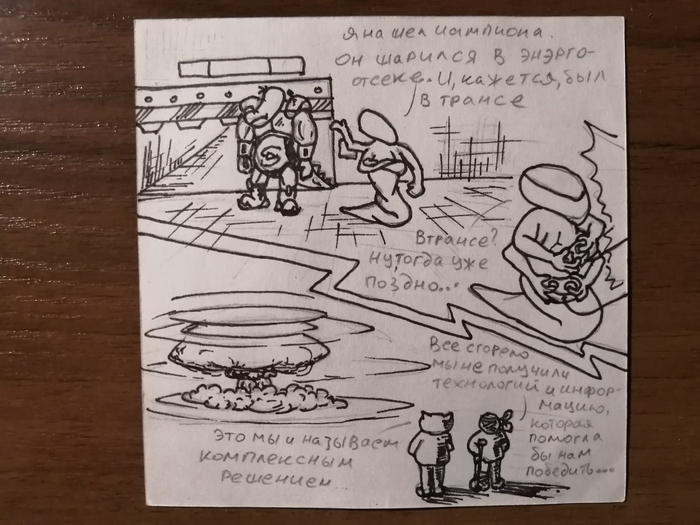 Я нашел чампиона.
Он шарился в энэрго-
отсеке. И, кажется, был
в трансе
В трансе?
ну, тогда уже
поздно...
Все сгорело
мы не получили
технологий и инфор-
мацию,
которая
помогла
бы нам
победить...
Это мы и называем
комплексным
решением...